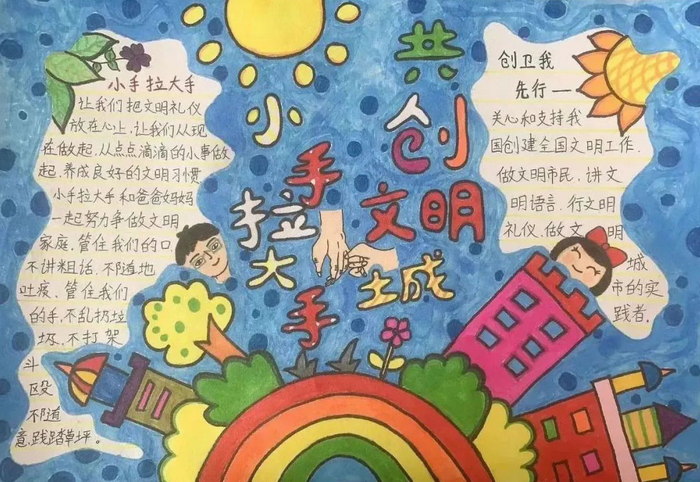 小手拉大手
共创文明城
小手拉大手
让我们把文明礼仪
放在心上,让我们从现
在做起,从点点滴滴的小事做
起,养成良好的文明习惯
小手拉大手和爸爸妈妈
一起努力争做文明
家庭,管住我们的口
不讲粗话、不随地
吐痰、管住我们
的手,不乱扔垃
圾、不打架
斗
殴
不随
意践踏草坪。
创卫我
先行一
关心和支持我
国创建全国文明工作,
做文明市民、讲文
明语言、行文明
礼仪、做文明
城
市的实
践者。